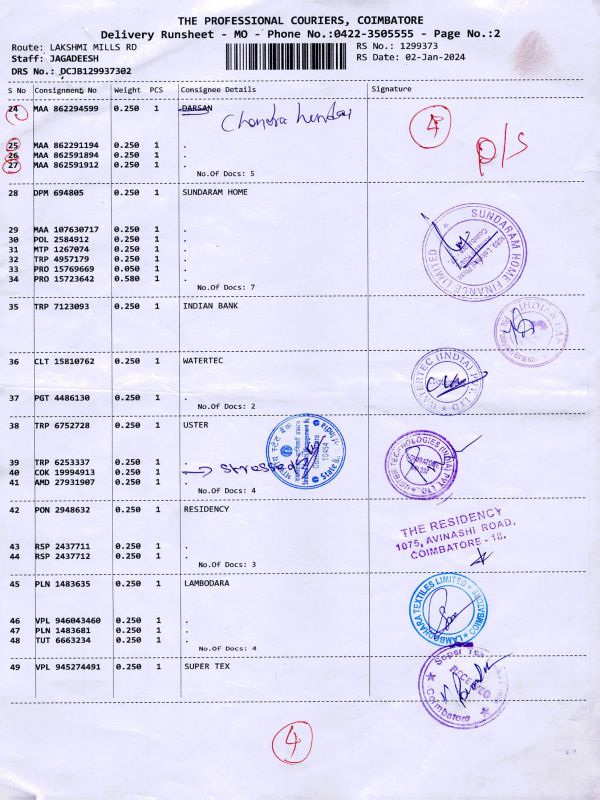 THE PROFESSIONAL COURIERS, COIMBATORE
Delivery Runsheet - MO - Phone No.:0422-3505555 - Page No.:2
Route: LAKSHMI MILLS RD
RS No.: 1299373
Staff: JAGADEESH
RS Date: 02-Jan-2024
DRS No.: DCJB129937302
S No Consignment No Weight PCS Consignee Details Signature
24 MAA 862294599 0.250 1 DARSAN
4
p/s
25 MAA 862291194 0.250 1 .
26 MAA 862591894 0.250 1 .
27 MAA 862591912 0.250 1 .
No.Of Docs: 5
28 DPM 694805 0.250 1 SUNDARAM HOME
SUNDARAM HOME FINANCE LIMITED
29 MAA 107630717 0.250 1 .
30 POL 2584912 0.250 1 .
31 MTP 1267074 0.250 1 .
32 TRP 4957179 0.250 1 .
33 PRO 15769669 0.050 1 .
34 PRO 15723642 0.580 1 .
No.Of Docs: 7
35 TRP 7123093 0.250 1 INDIAN BANK
36 CLT 15810762 0.250 1 WATERTEC
WATERTEC (INDIA) P
37 PGT 4486130 0.250 1 .
No.Of Docs: 2
38 TRP 6752728 0.250 1 USTER
TECHNOLOGIES (INDIA) PVT LTD
39 TRP 6253337 0.250 1 .
40 COK 19994913 0.250 1 .
41 AMD 27931907 0.250 1 .
No.Of Docs: 4
42 PON 2948632 0.250 1 RESIDENCY
THE RESIDENCY
1075, AVINASHI ROAD,
COIMBATORE - 18.
43 RSP 2437711 0.250 1 .
44 RSP 2437712 0.250 1 .
No.Of Docs: 3
45 PLN 1483635 0.250 1 LAMBODARA
TEXTILES LIMITED
46 VPL 946043460 0.250 1 .
47 PLN 1483681 0.250 1 .
48 TUT 6663234 0.250 1 .
No.Of Docs: 4
49 VPL 945274491 0.250 1 SUPER TEX
Super Tex
RECEIVED
Coimbatore
4